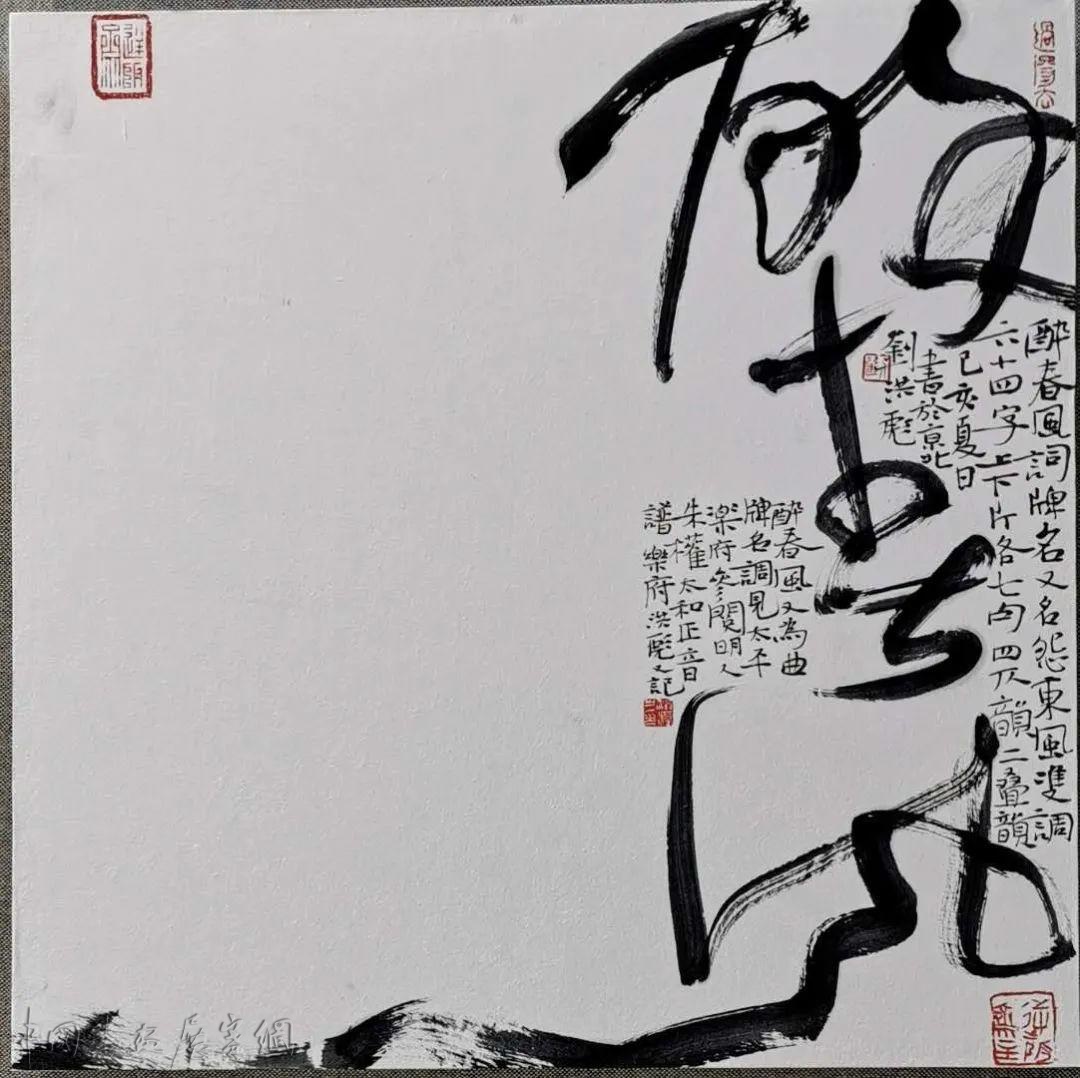 醉春风
醉春風詞牌名又名怨東風雙調
六十四字上下片各七句四仄韻二叠韻
己亥夏日
書於京北
劉洪彪
醉春風又為曲
牌名調見太平
楽府參閱明人
朱權太和正音
譜樂府洪彪又記